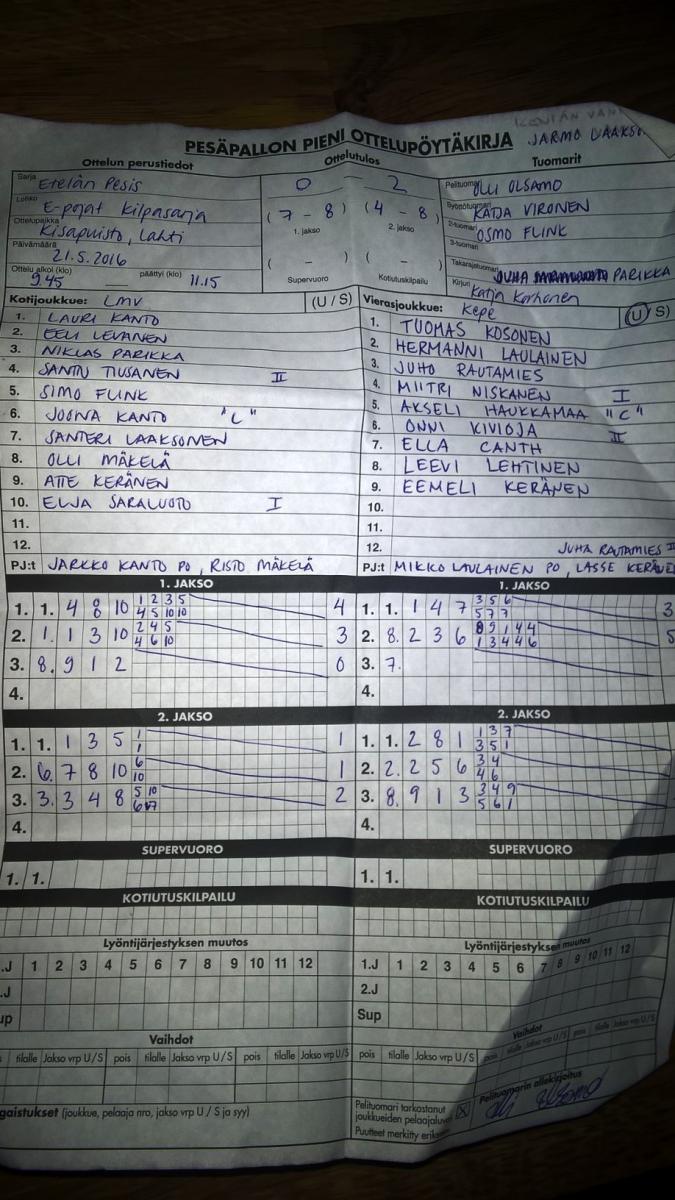 JARMO
PESÄPALLON PIENI OTTELUPÖYTÄKIRJA
Ottelun perustiedot
Ottelutulos
Tuomarit
Sarja Etelän Pesis
Lohko E-pojat kilpasarja
Ottelupaikka Kisapuisto, Lahti
Päivämäärä 21.5.2016
Ottelu alkoi (klo) 9.45 päättyi (klo) 11.15
0 – 2
(7 – 8) (4 – 8)
1. jakso 2. jakso
( – ) ( – )
Supervuoro Kotiutuskilpailu
Pelituomari OLLI OLSAMO
Syöttötuomari KATJA VIRONEN
2-tuomari OSMO FLINK
3-tuomari
Takarajatuomari JUHA PARIKKA
Kirjuri Katja Korhonen
Kotijoukkue: LMV (U / S)
1. LAURI KANTO
2. EELI LEVÄNEN
3. NIKLAS PARIKKA
4. SANTTU TIUSANEN II
5. SIMO FLINK
6. JOONA KANTO "C"
7. SANTERI LAAKSONEN
8. OLLI MÄKELÄ
9. ATTE KERÄNEN
10. ELJA SARALUOTO I
11.
12.
PJ:t JARKKO KANTO PO, RISTO MÄKELÄ
Vierasjoukkue: Kepe (U / S)
1. TUOMAS KOSONEN
2. HERMANNI LAULAINEN
3. JUHO RAUTAMIES
4. MIITRI NISKANEN I
5. AKSELI HAUKKAMAA "C"
6. ONNI KIVIOJA II
7. ELLA CANTH
8. LEEVI LEHTINEN
9. EEMELI KERÄNEN
10.
11.
12. JUHA RAUTAMIES
PJ:t MIKKO LAULAINEN PO, LASSE
1. JAKSO
1. 1. 4 8 10 1 2 3 5 4
4 5 10 10
2. 1. 1 3 10 2 4 5 3
4 6 10
3. 8. 9 1 2 0
4.
1. JAKSO
1. 1. 1 4 7 3 5 6 3
5 7 7
2. 8. 2 3 6 8 9 1 4 4 5
1 3 4 4 6
3. 7.
4.
2. JAKSO
1. 1. 1 3 5 1 1
1
2. 6. 7 8 10 6 1
10
3. 3. 3 4 8 5 10 2
4.
2. JAKSO
1. 1. 2 8 1 1 3 7
3 5 1
2. 2. 2 5 6 3 4
4 6
3. 8. 9 1 3 3 4 9
5 6 1
4.
SUPERVUORO
1. 1.
SUPERVUORO
1. 1.
KOTIUTUSKILPAILU
KOTIUTUSKILPAILU
Lyöntijärjestyksen muutos
.J 1 2 3 4 5 6 7 8 9 10 11 12
.J
up
Lyöntijärjestyksen muutos
1.J 1 2 3 4 5 6 7 8 9 10 11 12
2.J
Sup
Vaihdot
tilalle Jakso vrp U/S pois tilalle Jakso vrp U/S pois tilalle Jakso vrp U/S
Vaihdot
pois tilalle Jakso vrp U/S pois tilalle Jakso vrp U/S pois tilalle Jakso vrp U/S
gaistukset (joukkue, pelaaja nro, jakso vrp U / S ja syy)
Pelituomari tarkastanut
joukkueiden pelaajaluvat
Puutteet merkitty
Pelituomarin allekirjoitus